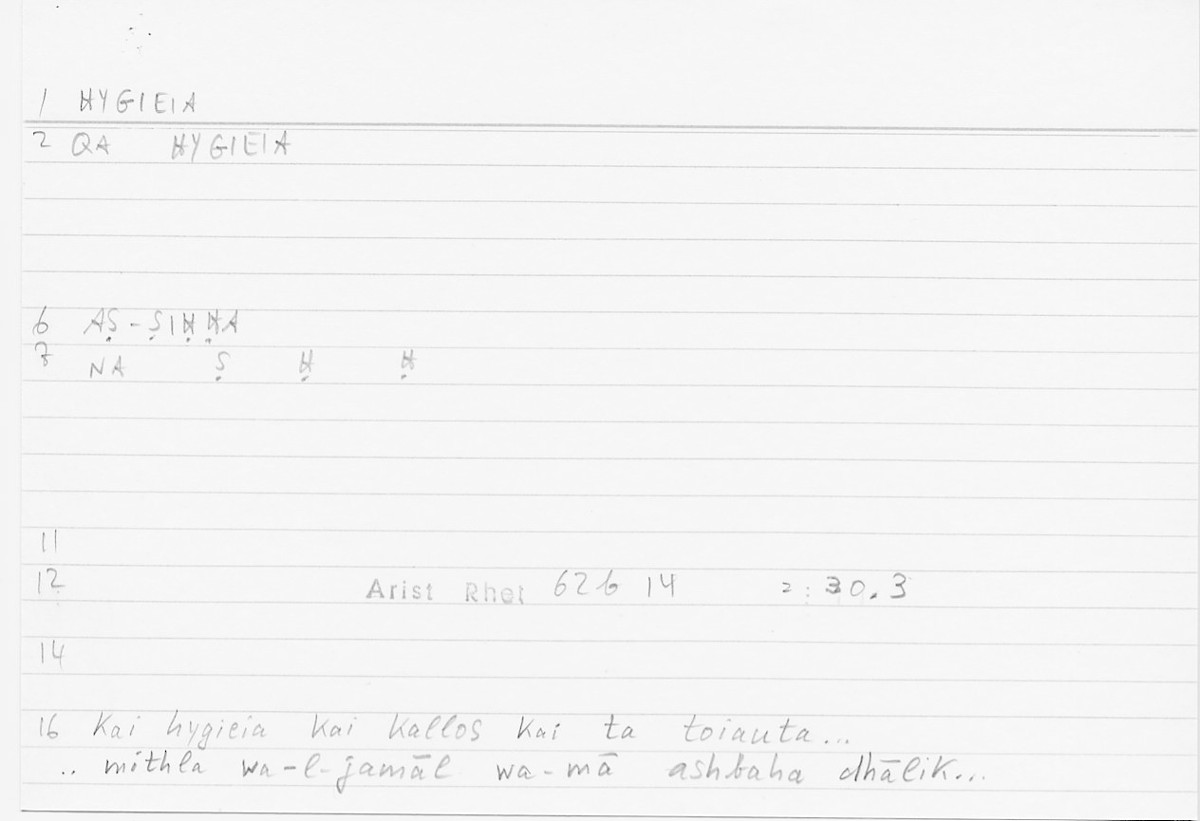 1 HYGIEIA
2 QA HYGIEIA
6 AṢ-ṢIḤḤA
7 NA Ṣ Ḥ Ḥ
11
12 Arist Rhet 62b 14 = : 30.3
14
16 Kai hygieia kai kallos kai ta toiauta...
.. mithla wa-l-jamāl wa-mā ashbaha dhālik...